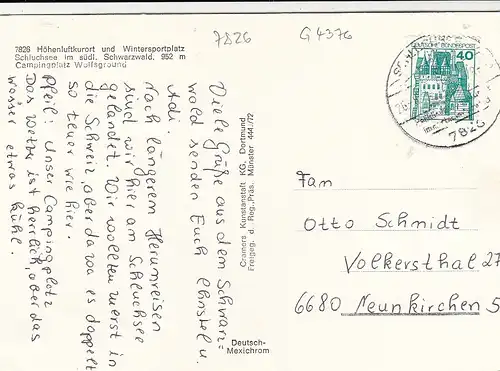 7826
G 4376
7826 Höhenluftkurort und Wintersportplatz
Schluchsee im südl. Schwarzwald, 952 m
Campingplatz Wolfsgrund
Viele Grüße aus dem Schwarz=
wald senden Euch Christel u.
Adi.
Nach längerem Herumreisen
sind wir hier am Schluchsee
gelandet. Wir wollten zuerst in
die Schweiz, aber da wo es doppelt
so teuer wie hier.
Pfeil! Unser Campingplatz
Das Wetter ist herrlich, aber das
Wasser etwas kühl.
Cramers Kunstanstalt KG, Dortmund
Freigeg. d. Reg.-Präs. Münster 444/72
Deutsch-
Mexichrom
DEUTSCHE BUNDESPOST
40
7826
Fam
Otto Schmidt
Volkersthal 27
6680 Neunkirchen S